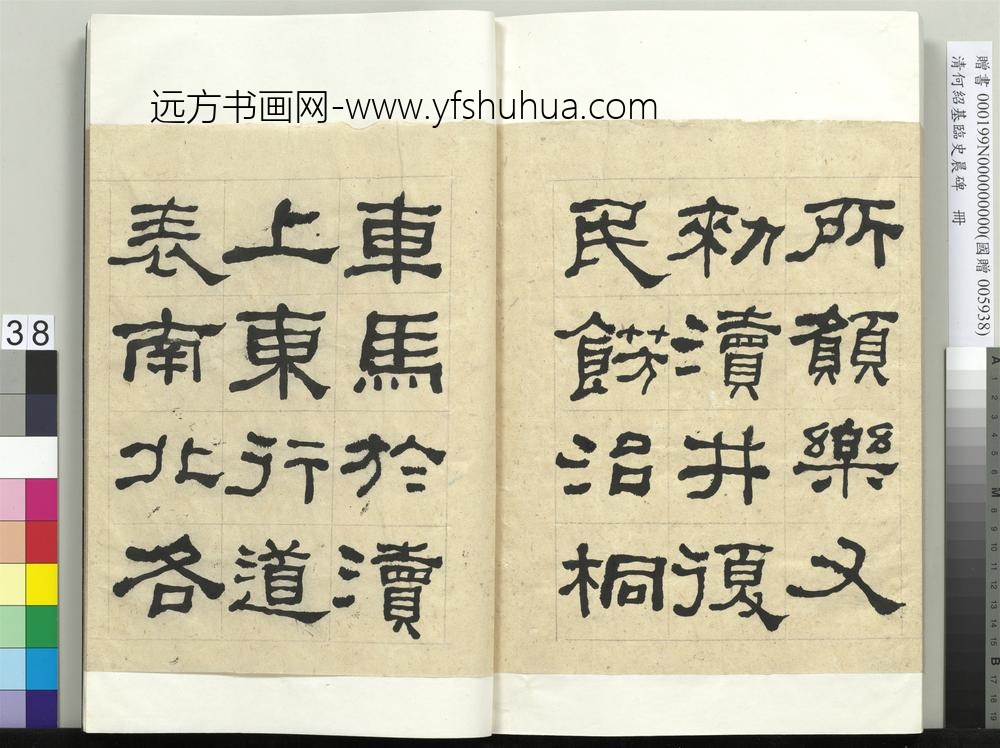 远方书画网-www.yfshuhua.com
所願樂又
勑瀆井復
民餝治桐
車馬於瀆
上東行道
表南北各
贈書 000199N000000000(國贈 005938)
清何紹基臨史晨碑 冊
38
A 1 2 3 4 5 6 M 8 9 10 11 12 13 14 15 B 17 18 19